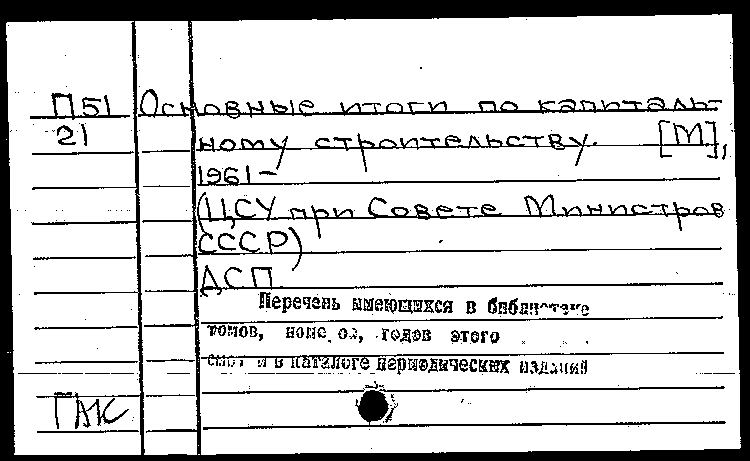 П51 Основные итоги по капиталь-
21 ному строительству. [М],
1961-
(ЦСУ при Совете Министров
СССР)
ДСП
Перечень имеющихся в библиотеке
томов, номеров, годов этого
смотри в каталоге периодических изданий
ГАК